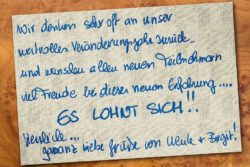 Wir denken sehr oft an unser
wertvolles Veränderungsjahr zurück...
und wünschen allen neuen Teilnehmern
viel Freude bei dieser neuen Erfahrung....
ES LOHNT SICH!!
Herzliche...
ganz liebe Grüße von Ulrike & Birgit!